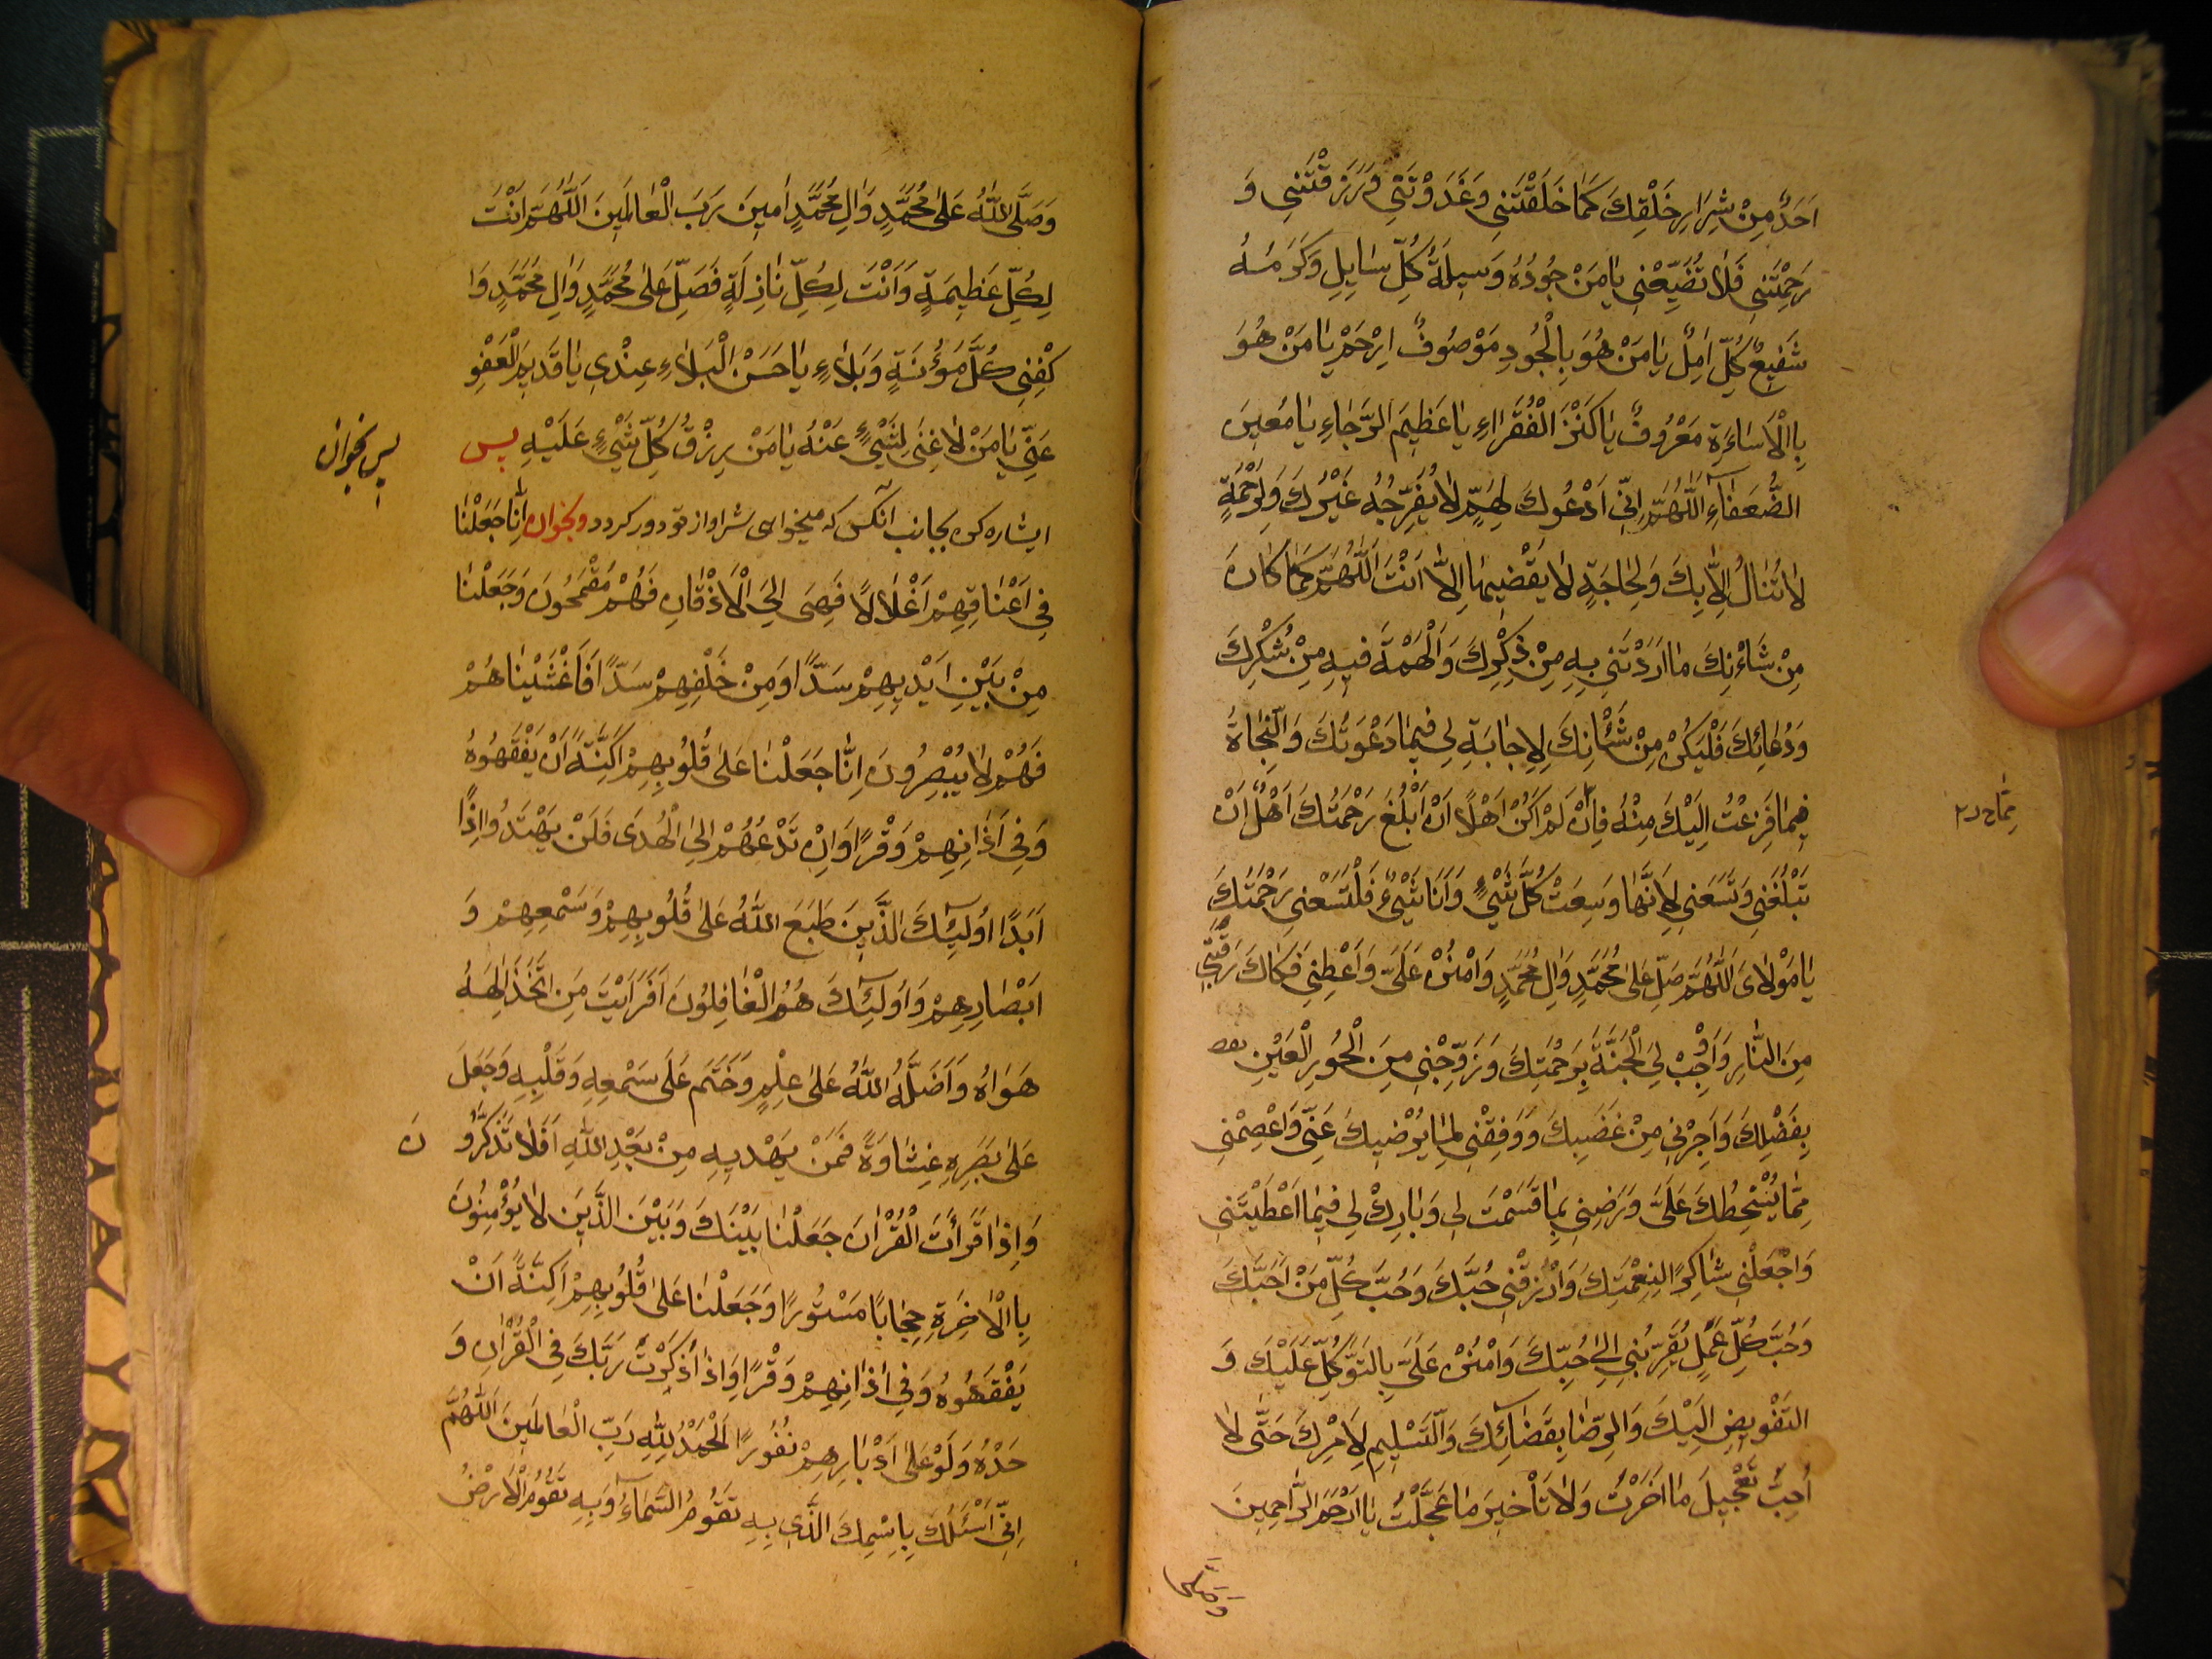 اَحَدٌ مِنْ شِرَارِ خَلْقِكَ كَمَا خَلَقْتَنِي وَغَذَوْتَنِي وَرَزَقْتَنِي وَ
رَحِمْتَنِي فَلَا تُضَيِّعْنِي يَا مَنْ جُودُهُ وَسِيلَةُ كُلِّ سَايِلٍ وَكَرَمُهُ
شَفِيعُ كُلِّ امِلٍ يَا مَنْ هُوَ بِالْجُودِ مَوْصُوفٌ اِرْحَمْ يَا مَنْ هُوَ
بِالْاَسَاءَةِ مَعْرُوفٌ يَا كَنْزَ الْفُقَرَاءِ يَا عَظِيمَ الرَّجَاءِ يَا مُعِينَ
الضُّعَفَاءِ اَللَّهُمَّ اِنِّي اَدْعُوكَ لِهَمٍّ لَا يُفَرِّجُهُ غَيْرُكَ وَلِرَحْمَةٍ
لَا تُنَالُ اِلَّا بِكَ وَلِحَاجَةٍ لَا يَقْضِيهَا اِلَّا اَنْتَ اَللَّهُمَّ كَمَا كَانَ
مِنْ شَاْنِكَ مَا اَرَدْتَنِي بِهِ مِنْ ذِكْرِكَ وَاَلْهَمْتَهُ فِيهِ مِنْ شُكْرِكَ
وَدُعَائِكَ فَلْيَكُنْ مِنْ شَاْنِكَ لِلاِجَابَةِ لِي فِيمَا دَعْوَتُكَ وَالنَّجَاةُ
فِيمَا فَزِعْتُ اِلَيْكَ مِنْهُ فَاِنْ لَمْ اَكُنْ اَهْلًا اَنْ اَبْلُغَ رَحْمَتَكَ اَهْلٌ اَنْ
تَبْلُغَنِي وَتَسَعَنِي لِاَنَّهَا وَسِعَتْ كُلَّ شَيْءٍ وَاَنَا شَيْءٌ فَلْتَسَعْنِي رَحْمَتُكَ
يَا مَوْلَايَ اَللَّهُمَّ صَلِّ عَلَى مُحَمَّدٍ وَالِ مُحَمَّدٍ وَامْنُنْ عَلَيَّ وَاَعْطِنِي فَكَاكَ رَقَبَتِي
مِنَ النَّارِ وَاَوْجِبْ لِيَ الْجَنَّةَ بِرَحْمَتِكَ وَزَوِّجْنِي مِنَ الْحُورِ الْعَيْنِ
بِفَضْلِكَ وَاَجِرْنِي مِنْ غَضَبِكَ وَوَفِقْنِي لِمَا يُرْضِيكَ عَنِّي وَاعْصِمْنِي
مِمَّا يُسْخِطُكَ عَلَيَّ وَرَضِنِي بِمَا قَسَمْتَ لِي وَبَارِكْ لِي فِيمَا اَعْطَيْتَنِي
وَاجْعَلْنِي شَاكِرًا لِنِعْمَتِكَ وَارْزُقْنِي حُبَّكَ وَحُبَّ كُلِّ مَنْ اَحَبَّكَ
وَحُبَّ كُلِّ عَمَلٍ يُقَرِّبُنِي اِلَى حُبِّكَ وَامْنُنْ عَلَيَّ بِالتَوَّكُلِّ عَلَيْكَ وَ
التَفْوِيضِ اِلَيْكَ وَالرِّضَا بِقَضَائِكَ وَالتَّسْلِيمِ لِاَمْرِكَ حَتَّى لَا
اُحِبُّ تَعْجِيلَ مَا اَخَرْتَ وَلَا تَاْخِيرَ مَا عَجَّلْتَ يَا اَرْحَمَ الرَّاحِمِينَ
وَصَلَّى
وَصَلَّى اللّٰهُ عَلَى مُحَمَّدٍ وَالِ مُحَمَّدٍ امِينَ رَبَ الْعَالَمِينَ اَللَّهُمَّ اَنْتَ
لِكُلِّ عَظِيمَةٍ وَاَنْتَ لِكُلِّ نَازِلَةٍ فَصَلِّ عَلَى مُحَمَّدٍ وَالِ مُحَمَّدٍ وَا
كْفِنِي كُلَّ مَؤُنَةٍ وَبَلَاءٍ يَا حَسَنَ الْبَلَاءِ عِنْدِي يَا قَدِيمَ الْعَفْوِ
عَنِّي يَا مَنْ لَا غِنَى لِشَيْءٍ عَنْهُ يَا مَنْ رِزْقُ كُلِّ شَيْءٍ عَلَيْهِ پس
پس بخوان
ايشاره كن بجانب آنكس كه ميخواهى شر او از تو دور كردد و بخوان اِنَّا جَعَلْنَا
فِي اَعْنَاقِهِمْ اَغْلَالًا فَهِيَ اِلَى الْاَذْقَانِ فَهُمْ مُقْمَحُونَ وَجَعَلْنَا
مِنْ بَيْنِ اَيْدِيهِمْ سَدًّا وَمِنْ خَلْفِهِمْ سَدًّا فَاَغْشَيْنَاهُمْ
فَهُمْ لَا يُبْصِرُونَ اِنَّا جَعَلْنَا عَلَى قُلُوبِهِمْ اَكِنَّةً اَنْ يَفْقَهُوهُ
وَفِي اَذَانِهِمْ وَقْرًا وَاِنْ تَدْعُهُمْ اِلَى الْهُدَى فَلَنْ يَهْتَدُوا اِذًا
اَبَدًا اُولَئِكَ الَّذِينَ طَبَعَ اللّٰهُ عَلَى قُلُوبِهِمْ وَسَمْعِهِمْ وَ
اَبْصَارِهِمْ وَاُولَئِكَ هُمُ الْغَافِلُونَ اَفَرَاَيْتَ مَنِ اتَّخَذَ اِلَهَهُ
هَوَاهُ وَاَضَلَّهُ اللّٰهُ عَلَى عِلْمٍ وَخَتَمَ عَلَى سَمْعِهِ وَقَلْبِهِ وَجَعَلَ
عَلَى بَصَرِهِ غِشَاوَةً فَمَنْ يَهْدِيهِ مِنْ بَعْدِ اللّٰهِ اَفَلَا تَذَكَّرُو نَ
وَاِذَا قَرَأَتَ الْقُرْانَ جَعَلْنَا بَيْنَكَ وَبَيْنَ الَّذِينَ لَا يُؤْمِنُونَ
بِالْاَخِرَةِ حِجَابًا مَسْتُورًا وَجَعَلْنَا عَلَى قُلُوبِهِمْ اَكِنَّةً اَنْ
يَفْقَهُوهُ وَفِي اَذَانِهِمْ وَقْرًا وَاِذَا ذَكَرْتَ رَبَّكَ فِي الْقُرْانِ وَ
حَدْهُ وَلَوْ عَلَى اَدْبَارِهِمْ نُفُورًا اَلْحَمْدُ لِلّٰهِ رَبِّ الْعَالَمِينَ اَللّٰهُمَّ
اِنِّي اَسْئَلُكَ بِاِسْمِكَ الَّذِي بِهِ تَقُومُ السَّمَاءُ وَبِهِ تَقُومُ الْاَرْضُ